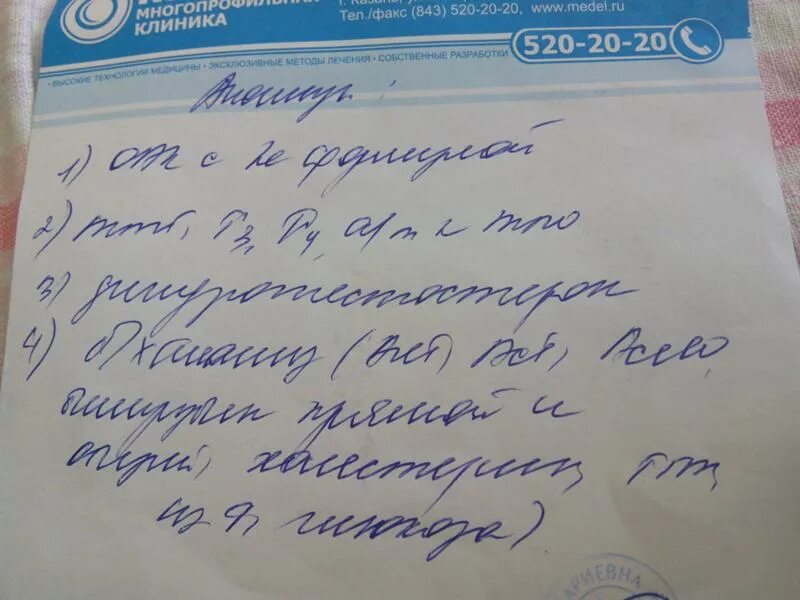 МНОГОПРОФИЛЬНАЯ
КЛИНИКА
г. Казань,
Тел./факс (843) 520-20-20, www.medel.ru
520-20-20
• ВЫСОКИЕ ТЕХНОЛОГИИ МЕДИЦИНЫ • ЭКСКЛЮЗИВНЫЕ МЕТОДЫ ЛЕЧЕНИЯ • СОБСТВЕННЫЕ РАЗРАБОТКИ
Анализы:
1) ОАК с формулой
2) ТТГ, Т3, Т4, а/т к ТПО
3) дигидротестостерон
4) б/х анализ (АлТ, АсТ,
билирубин прямой и
общий, холестерин, ГГТ,
глюкоза)
АРИЕВНА